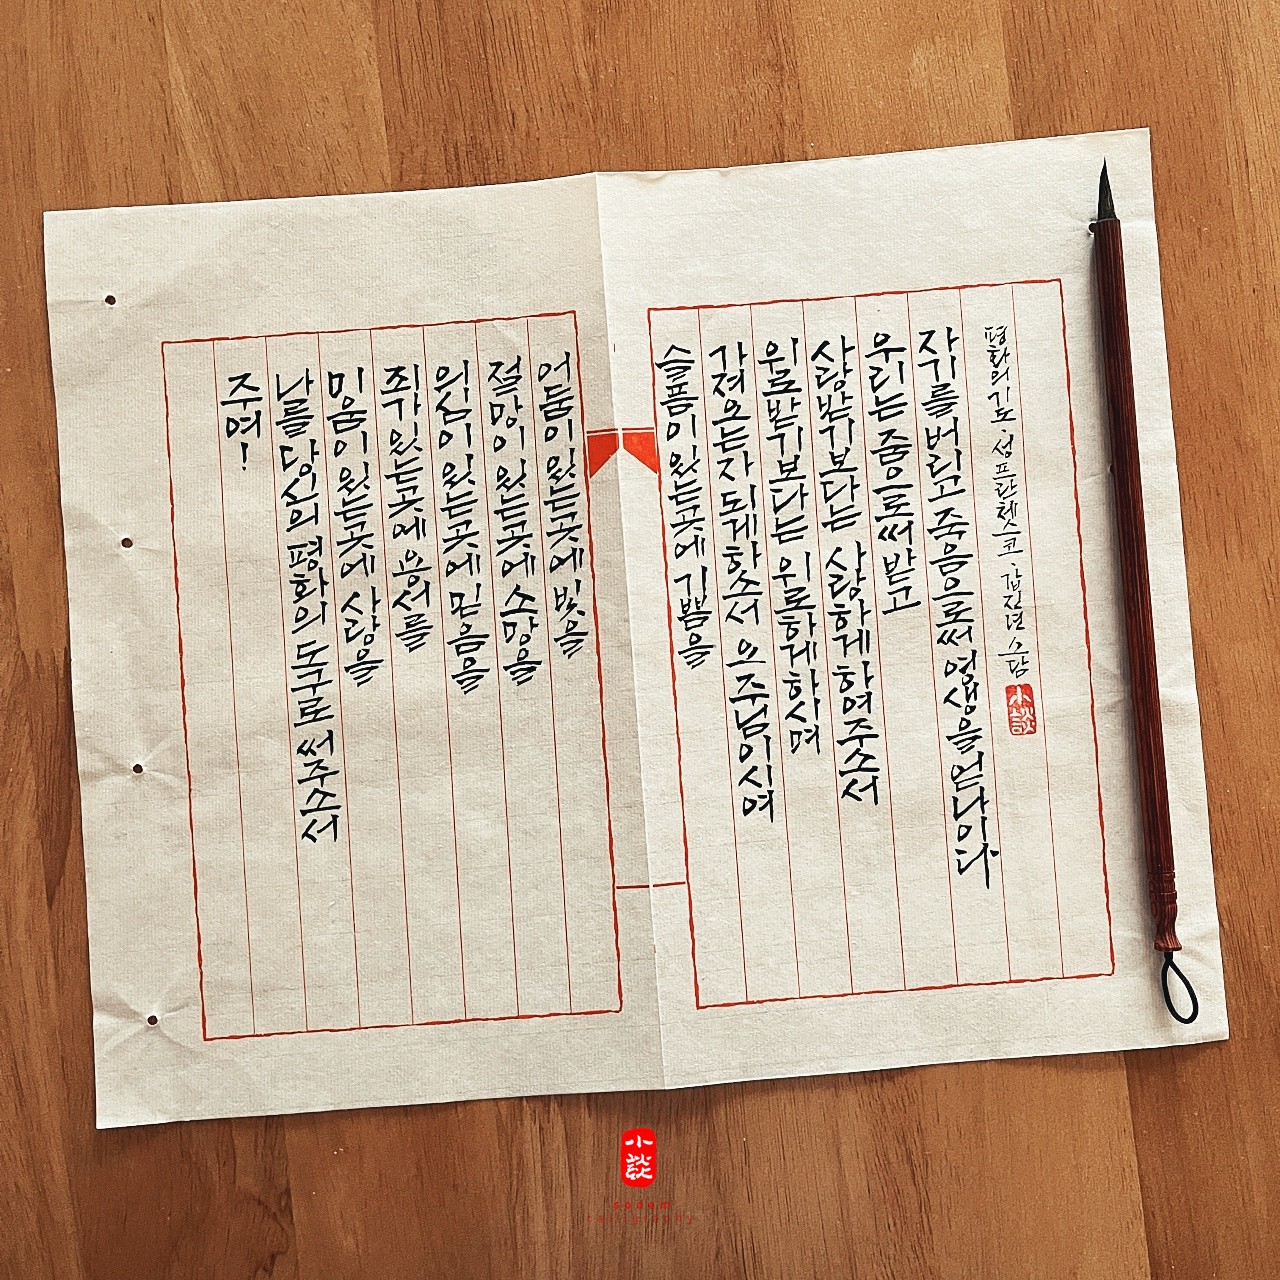 주여!
나를 당신의 평화의 도구로 써주소서
미움이 있는곳에 사랑을
죄가 있는곳에 용서를
의심이 있는곳에 믿음을
절망이 있는곳에 소망을
어둠이 있는곳에 빛을
슬픔이 있는곳에 기쁨을
가져오는자 되게하소서 오 주님이시여
위로받기보다는 위로하게하시며
사랑받기보다는 사랑하게하여주소서
우리는 줌으로써 받고
자기를 버리고 죽음으로써 영생을 얻나이다
평화의기도·성프란체스코 갑진년 소담
小談
小談
sodam
calligraphy